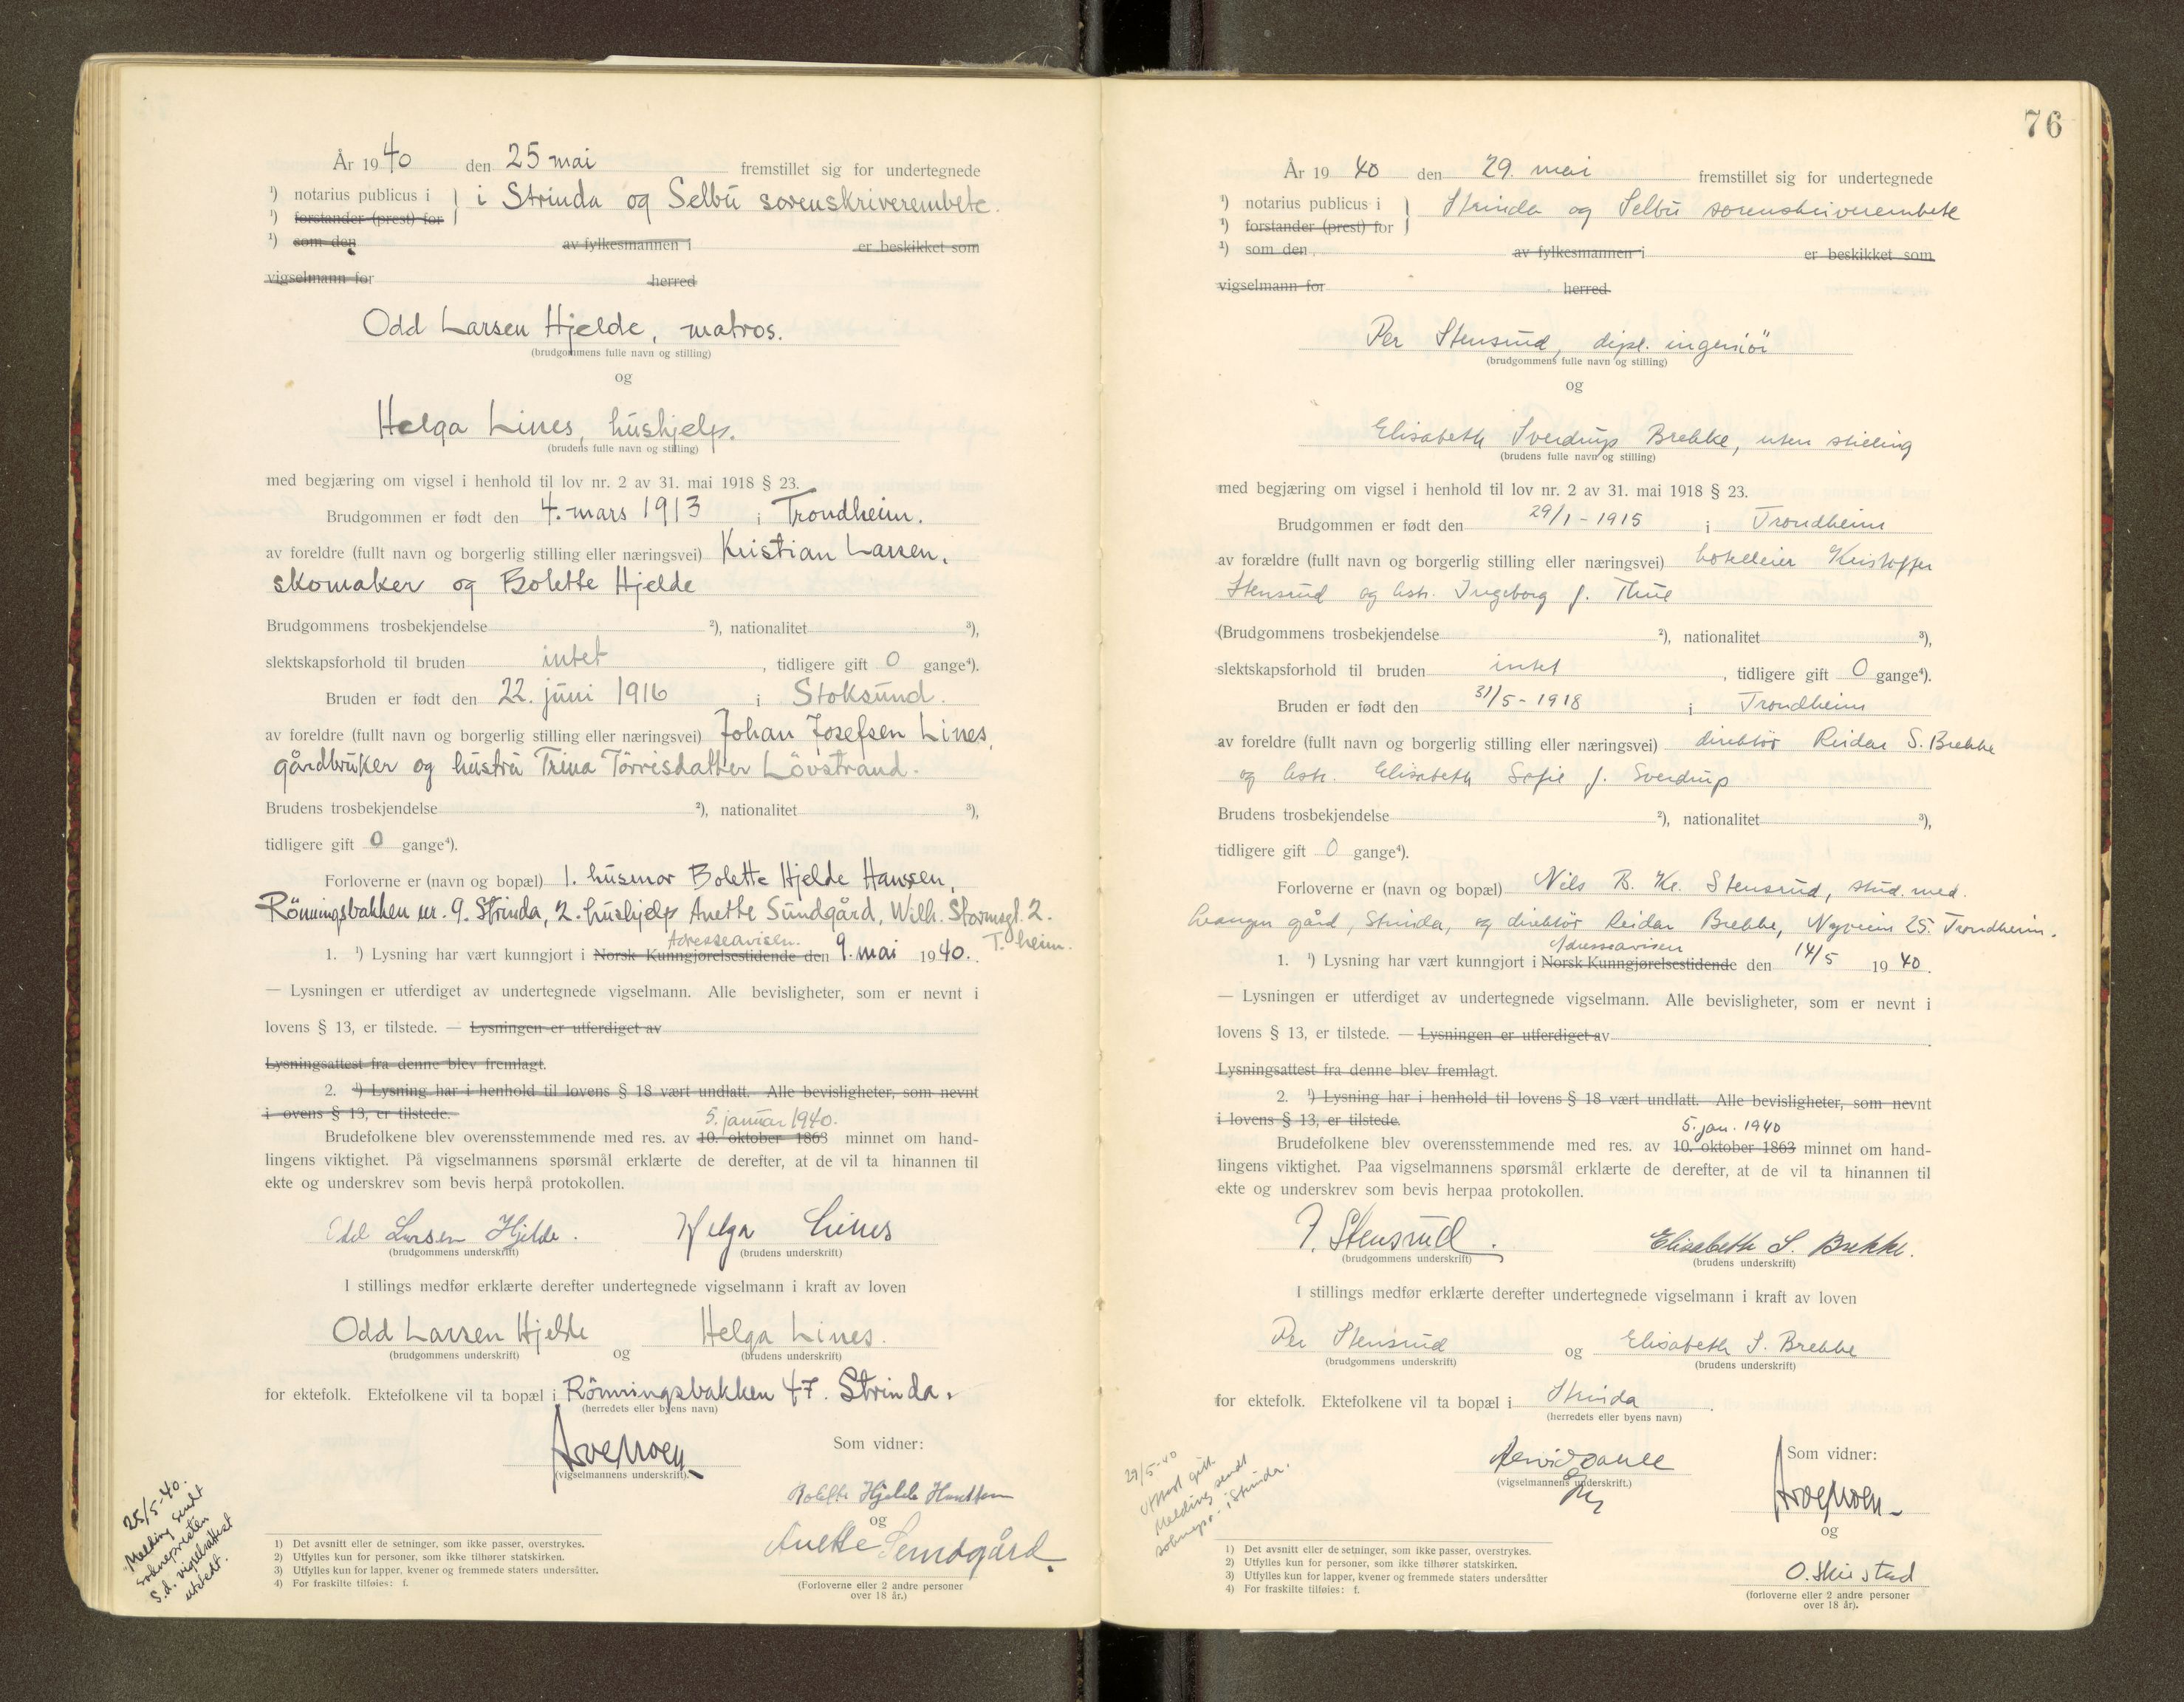 År 1940 den 25 mai fremstillet sig for undertegnede
¹) notarius publicus i } i Strinda og Selbu sorenskriverembete.
¹) forstander (prest) for
¹) som den av fylkesmannen i er beskikket som
vigselmann for herred
Odd Larsen Hjelde, matros.
(brudgommens fulle navn og stilling)
og
Helga Lines, hushjelp.
(brudens fulle navn og stilling)
med begjæring om vigsel i henhold til lov nr. 2 av 31. mai 1918 § 23.
Brudgommen er født den 4. mars 1913 i Trondheim.
av foreldre (fullt navn og borgerlig stilling eller næringsvei) Kristian Larsen,
skomaker og Bolette Hjelde
Brudgommens trosbekjendelse ²), nationalitet ³),
slektskapsforhold til bruden intet , tidligere gift 0 gange⁴).
Bruden er født den 22. juni 1916 i Stoksund.
av foreldre (fullt navn og borgerlig stilling eller næringsvei) Johan Josefsen Lines,
gårdbruker og hustru Trina Törrisdatter Lövstrand.
Brudens trosbekjendelse ²), nationalitet ³),
tidligere gift 0 gange⁴).
Forloverne er (navn og bopæl) 1. husmor Bolette Hjelde Hanssen,
Rönningsbakken nr. 9. Strinda, 2. hushjelp Anette Sundgård, Wilh. Stormsgt. 2.
Adresseavisen. T.heim.
1. ¹) Lysning har vært kunngjort i Norsk Kunngjørelsestidende den 9. mai 1940.
— Lysningen er utferdiget av undertegnede vigselmann. Alle bevisligheter, som er nevnt i
lovens § 13, er tilstede. — Lysningen er utferdiget av
Lysningsattest fra denne blev fremlagt.
2. ¹) Lysning har i henhold til lovens § 18 vært undlatt. Alle bevisligheter, som nevnt
i ovens § 13, er tilstede.
5. januar 1940.
Brudefolkene blev overensstemmende med res. av 10. oktober 1863 minnet om hand-
lingens viktighet. På vigselmannens spørsmål erklærte de derefter, at de vil ta hinannen til
ekte og underskrev som bevis herpå protokollen.
Odd Larsen Hjelde. Helga Lines
(brudgommens underskrift) (brudens underskrift)
I stillings medfør erklærte derefter undertegnede vigselmann i kraft av loven
Odd Larsen Hjelde og Helga Lines.
(brudgommens underskrift) (brudens underskrift)
for ektefolk. Ektefolkene vil ta bopæl i Rönningsbakken 47. Strinda.
(herredets eller byens navn)
(vigselmannens underskrift).
Som vidner:
Bolette Hjelde Hanssen
og
Anette Sundgård.
(Forloverne eller 2 andre personer
over 18 år.)
25/5-40.
Melding sendt
soknepresten
S.d. vigselattest
utstedt.
1) Det avsnitt eller de setninger, som ikke passer, overstrykes.
2) Utfylles kun for personer, som ikke tilhører statskirken.
3) Utfylles kun for lapper, kvener og fremmede staters undersåtter.
4) For fraskilte tilføies: f.
76
År 1940 den 29. mai fremstillet sig for undertegnede
¹) notarius publicus i } Strinda og Selbu sorenskriverembete
¹) forstander (prest) for
¹) som den av fylkesmannen i er beskikket som
vigselmann for herred
Per Stensrud, dipl. ingeniör
(brudgommens fulle navn og stilling)
og
Elisabeth Sverdrup Brekke, uten stilling
(brudens fulle navn og stilling)
med begjæring om vigsel i henhold til lov nr. 2 av 31. mai 1918 § 23.
Brudgommen er født den 29/1 - 1915 i Trondheim
av forældre (fullt navn og borgerlig stilling eller næringsvei) hotelleier Kristoffer
Stensrud og hstr. Ingeborg f. Thue
(Brudgommens trosbekjendelse ²), nationalitet ³),
slektskapsforhold til bruden intet , tidligere gift 0 gange⁴).
Bruden er født den 31/5 - 1918 i Trondheim
av foreldre (fullt navn og borgerlig stilling eller næringsvei) direktör Reidar S. Brekke
og hstr. Elisabeth Sofie f. Sverdrup
Brudens trosbekjendelse ²), nationalitet ³),
tidligere gift 0 gange⁴).
Forloverne er (navn og bopæl) Nils B. Kr. Stensrud, stud. med.
gård, Strinda, og direktör Reidar Brekke, Nyveien 25. Trondheim.
Adresseavisen
1. ¹) Lysning har vært kunngjort i Norsk Kunngjørelsestidende den 14/5 1940.
— Lysningen er utferdiget av undertegnede vigselmann. Alle bevisligheter, som er nevnt i
lovens § 13, er tilstede. — Lysningen er utferdiget av
Lysningsattest fra denne blev fremlagt.
2. ¹) Lysning har i henhold til lovens § 18 vært undlatt. Alle bevisligheter, som nevnt
i lovens § 13, er tilstede.
5. jan. 1940
Brudefolkene blev overensstemmende med res. av 10. oktober 1863 minnet om hand-
lingens viktighet. Paa vigselmannens spørsmål erklærte de derefter, at de vil ta hinannen til
ekte og underskrev som bevis herpaa protokollen.
P. Stensrud. Elisabeth S. Brekke.
(brudgommens underskrift) (brudens underskrift)
I stillings medfør erklærte derefter undertegnede vigselmann i kraft av loven
Per Stensrud og Elisabeth S. Brekke
(brudgommens underskrift) (brudens underskrift)
for ektefolk. Ektefolkene vil ta bopæl i Strinda.
(herredets eller byens navn)
(vigselmannens underskrift.)
Som vidner:
og
O. Skirstad
(forloverne eller 2 andre personer
over 18 år).
29/5-40
Attest gitt.
Melding sendt
sognepr. i Strinda.
1) Det avsnitt eller de setninger, som ikke passer, overstrykes.
2) Utfylles kun for personer, som ikke tilhører statskirken.
3) Utfylles kun for lapper, kvener og fremmede staters undersåtter
4) For fraskilte tilføies: f.